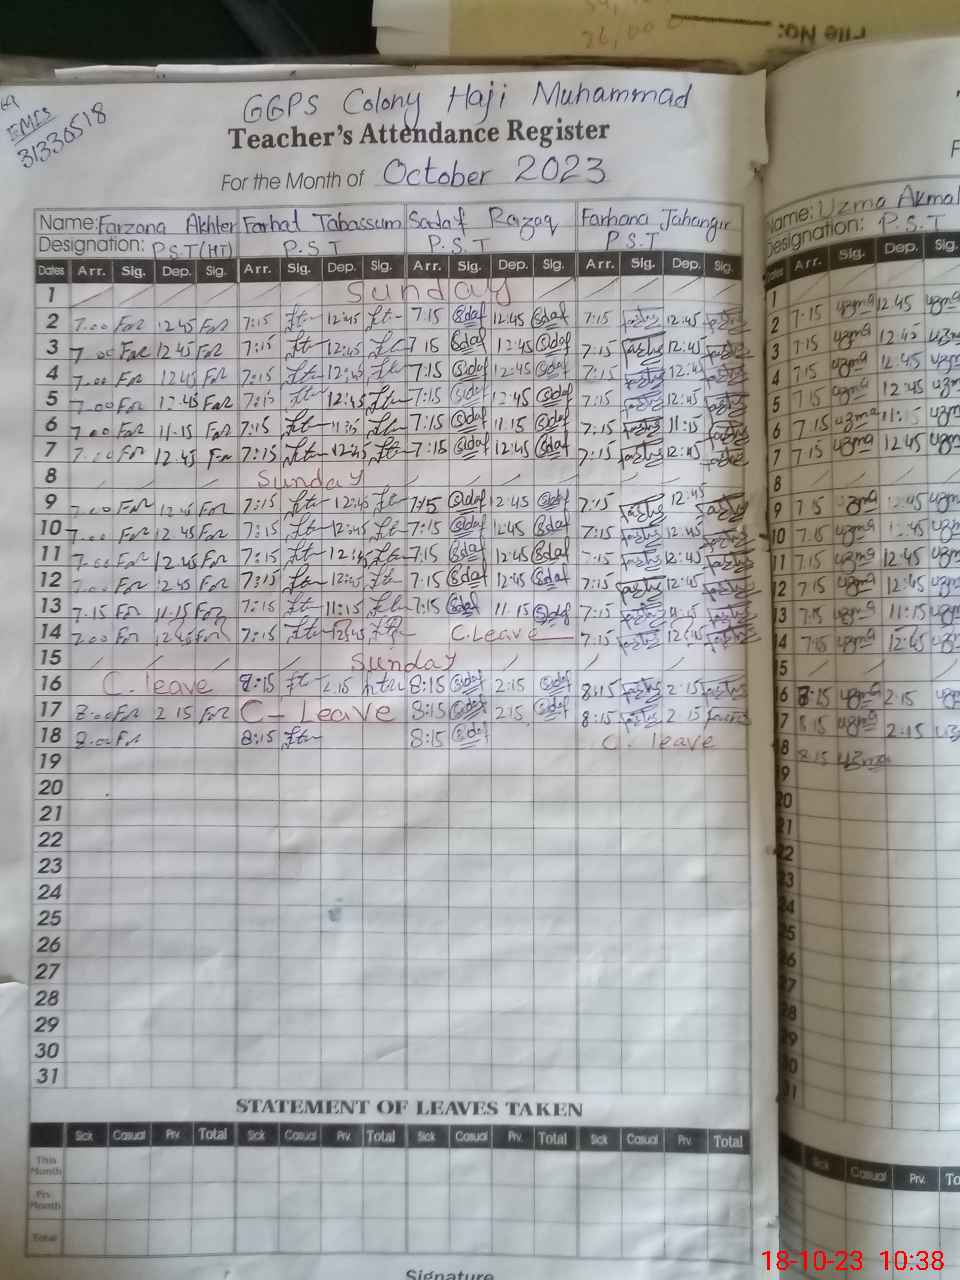 File No:
26,000
EMIS
31330518
GGPS Colony Haji Muhammad
Teacher's Attendance Register
For the Month of October 2023
Name: Farzana Akhter Farhat Tabassum Sadaf Razaq Farhana Jahangir
Designation: P.S.T(HT) P.S.T P.S.T P.S.T
Dates Arr. Sig. Dep. Sig. Arr. Sig. Dep. Sig. Arr. Sig. Dep. Sig. Arr. Sig. Dep. Sig.
1 Sunday
2 7.00 Far 12 45 Far 7:15 ft 12:45 ft 7 15 Sdaf 12:45 Sdaf 7:15 12:45
3 7 00 Far 12 45 Far 7:15 ft 12:45 ft 7 15 Sdaf 12:45 Sdaf 7:15 12:45
4 7.00 Far 12 45 Far 7:15 ft 12:45 ft 7:15 Sdaf 12:45 Sdaf 7:15 12:45
5 7.00 Far 12.45 Far 7:15 ft 12:45 ft 7:15 Sdaf 12 45 Sdaf 7:15 12:45
6 7.00 Far 11.15 Far 7:15 ft 11:15 ft 7:15 Sdaf 11 15 Sdaf 7:15 11:15
7 7.00 Far 12.45 Far 7:15 ft 12:45 ft 7:15 Sdaf 12:45 Sdaf 7:15 12:45
8 Sunday
9 7.00 Far 12 45 Far 7:15 ft 12:45 ft 7:15 Sdaf 12:45 Sdaf 7:15 12:45
10 7.00 Far 12 45 Far 7:15 ft 12:45 ft 7:15 Sdaf 12 45 Sdaf 7:15 12:45
11 7.00 Far 12.45 Far 7:15 ft 12:45 ft 7:15 Sdaf 12:45 Sdaf 7:15 12:45
12 7.00 Far 12.45 Far 7:15 ft 12:45 ft 7:15 Sdaf 12:45 Sdaf 7:15 12:45
13 7.15 Far 11.15 Far 7:15 ft 11:15 ft 7:15 Sdaf 11 15 Sdaf 7:15 11:15
14 7.00 Far 12.45 Far 7:15 ft 12:45 C.Leave 7:15 12:45
15 Sunday
16 C. leave 8:15 ft 2.15 8:15 Sdaf 2:15 Sdaf 8:15 2:15
17 8:00 Far 2 15 Far C- Leave 8:15 Sdaf 2:15 Sdaf 8:15 2 15
18 8.00 Far 8:15 ft 8:15 Sdaf C. leave
19
20
21
22
23
24
25
26
27
28
29
30
31
STATEMENT OF LEAVES TAKEN
Sick Casual Prv. Total Sick Casual Prv. Total Sick Casual Prv. Total Sick Casual Prv. Total
This Month
Prv. Month
Total
Signature
Name: Uzma Akmal
Designation: P.S.T
Dates Arr. Sig. Dep. Sig.
1
2 7.15 uzma 12 45 uzma
3 7.15 uzma 12 45 uzma
4 7.15 uzma 12.45 uzma
5 7.15 uzma 12 45 uzma
6 7.15 uzma 11:15 uzma
7 7.15 uzma 12.45 uzma
8
9 7 15 uzma 12:45 uzma
10 7.15 uzma 12:45 uzma
11 7.15 uzma 12:45 uzma
12 7 15 uzma 12:45 uzma
13 7:15 uzma 11:15 uzma
14 7:15 uzma 12:45 uzma
15
16 8:15 uzma 2:15
17 8.15 uzma 2:15
18 8.15 uzma
19
20
21
22
23
24
25
26
27
28
29
30
31
Sick Casual Prv.
18-10-23 10:38